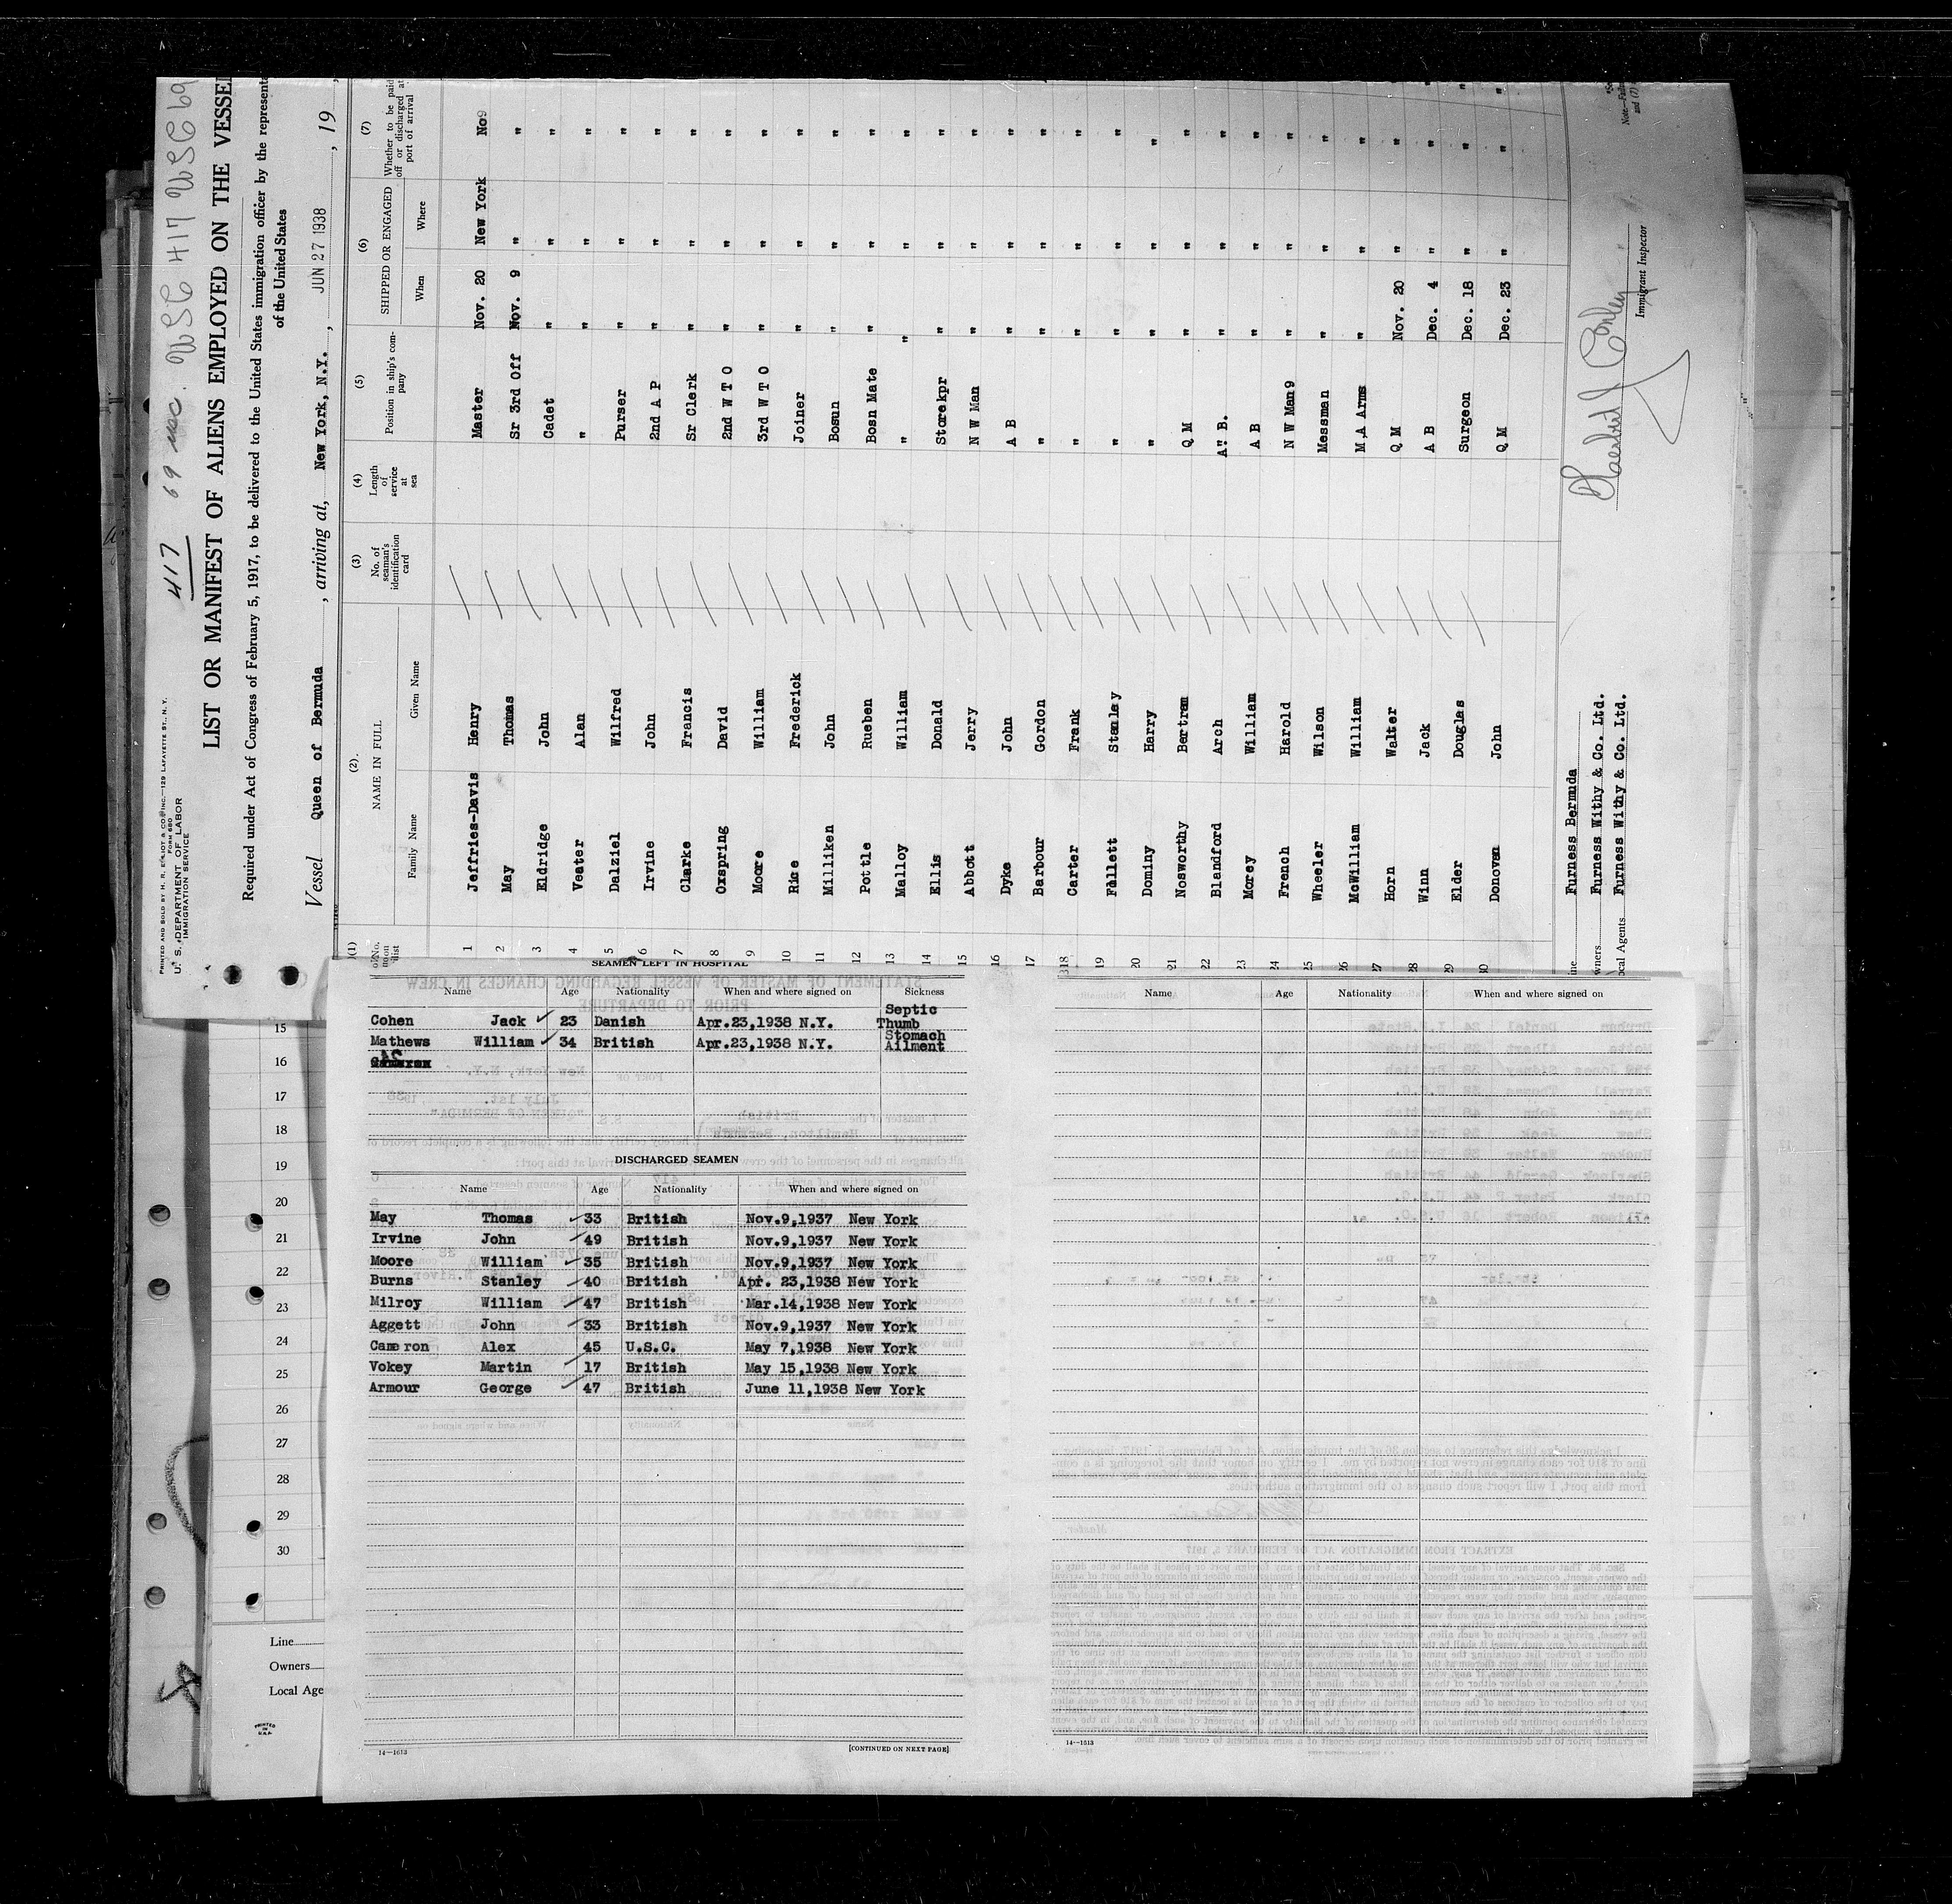 PRINTED AND SOLD BY H. R. ELLIOT & CO. INC.—129 LAFAYETTE ST., N. Y.
FORM 680
U. S. DEPARTMENT OF LABOR
IMMIGRATION SERVICE
417 69 usc. USC 417 USC 69
LIST OR MANIFEST OF ALIENS EMPLOYED ON THE VESSEL
Required under Act of Congress of February 5, 1917, to be delivered to the United States immigration officer by the represent
of the United States
Vessel Queen of Bermuda, arriving at, New York, N.Y., JUN 27 1938, 19
(1) (2) (3) (4) (5) (6) (7)
No. on list NAME IN FULL No. of seaman's identification card Length of service at sea Position in ship's company SHIPPED OR ENGAGED Whether to be paid off or discharged at port of arrival
Family Name Given Name When Where
1 Jeffries-Davis Henry Master Nov. 20 New York No9
2 May Thomas Sr 3rd Off Nov. 9 " "
3 Eldridge John Cadet " " "
4 Veater Alan " " " "
5 Dalziel Wilfred Purser " " "
6 Irvine John 2nd A P " " "
7 Clarke Francis Sr Clerk " " "
8 Oxspring David 2nd W T O " " "
9 Moore William 3rd W T O " " "
10 Rice Frederick Joiner " " "
11 Milliken John Bosun " " "
12 Pottle Rueben Bosn Mate " " "
13 Malloy William " " " "
14 Ellis Donald Storekpr " " "
15 Abbott Jerry N W Man " " "
16 Dyke John A B " " "
17 Barbour Gordon " " " "
18 Carter Frank " " " "
19 Fillett Stanley " " " "
20 Dominy Harry " " " "
21 Nosworthy Bertram Q M " " "
22 Blandford Arch A" B. " " "
23 Morey William A B " " "
24 French Harold N W Man9 " " "
25 Wheeler Wilson Messman " " "
26 McWilliam William M A Arms " " "
27 Horn Walter Q M Nov. 20 " "
28 Winn Jack A B Dec. 4 " "
29 Elder Douglas Surgeon Dec. 18 " "
30 Donovan John Q M Dec. 23 " "
ine Furness Bermuda
wners Furness Withy & Co. Ltd.
ocal Agents Furness Withy & Co. Ltd.
Immigrant Inspector
SEAMEN LEFT IN HOSPITAL
Name Age Nationality When and where signed on Sickness
Cohen Jack 23 Danish Apr.23,1938 N.Y. Septic Thumb
Mathews William 34 British Apr.23,1938 N.Y. Stomach Ailment
DISCHARGED SEAMEN
Name Age Nationality When and where signed on
May Thomas 33 British Nov.9,1937 New York
Irvine John 49 British Nov.9,1937 New York
Moore William 35 British Nov.9,1937 New York
Burns Stanley 40 British Apr. 23,1938 New York
Milroy William 47 British Mar.14,1938 New York
Aggett John 33 British Nov.9,1937 New York
Cameron Alex 45 U.S.C. May 7,1938 New York
Vokey Martin 17 British May 15,1938 New York
Armour George 47 British June 11,1938 New York
14—1613
[CONTINUED ON NEXT PAGE]
Name Age Nationality When and where signed on
14—1513
15
16
17
18
19
20
21
22
23
24
25
26
27
28
29
30
Line
Owners
Local Age
PRINTED IN U.S.A.